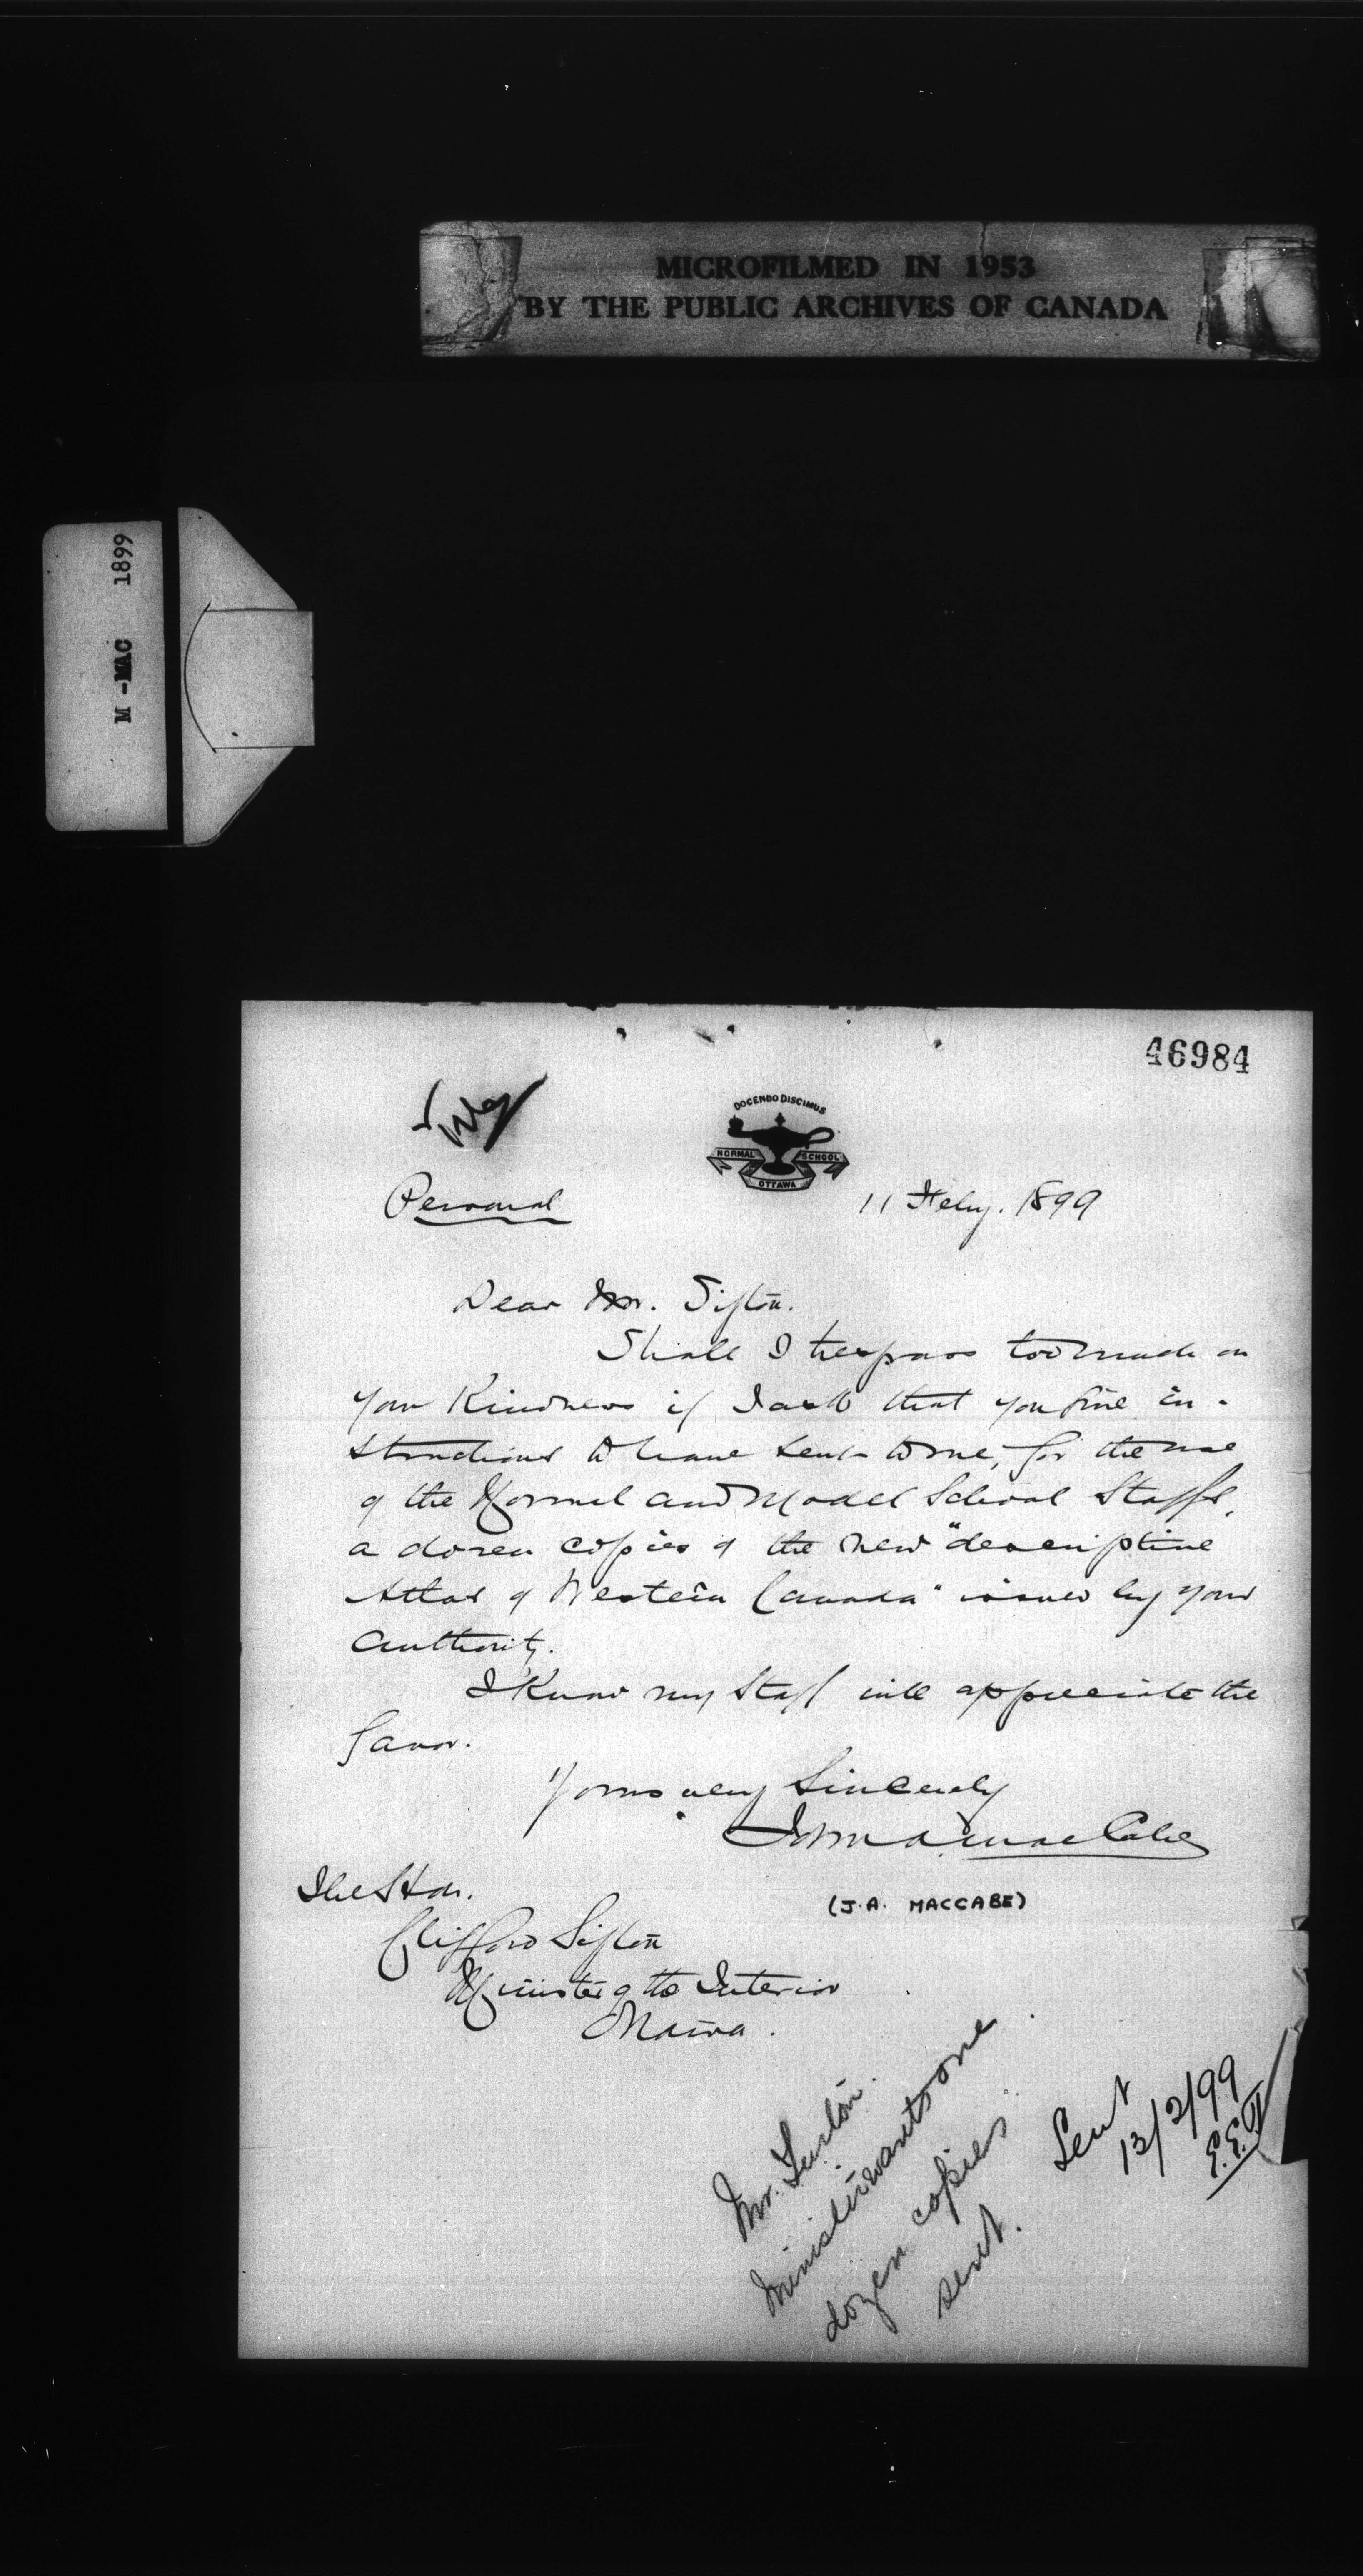 MICROFILMED IN 1953
BY THE PUBLIC ARCHIVES OF CANADA
M-MAC 1899
46984
DOCENDO DISCIMUS
NORMAL SCHOOL
OTTAWA
Personal
11 Feby. 1899
Dear Mr. Sifton.
Shall I trespass too much on
your kindness if I ask that you give in-
structions to have sent to me, for the use
of the Normal and Model School Staffs,
a dozen copies of the new "descriptive
Atlas of Western Canada" issued by your
authority.
I know my staff will appreciate the
favor.
Yours very sincerely
John A. MacCabe
(J.A. MACCABE)
The Hon.
Clifford Sifton
Minister of the Interior
Ottawa.
Mr.
Minister wants one
dozen copies
sent.
Sent
13/2/99